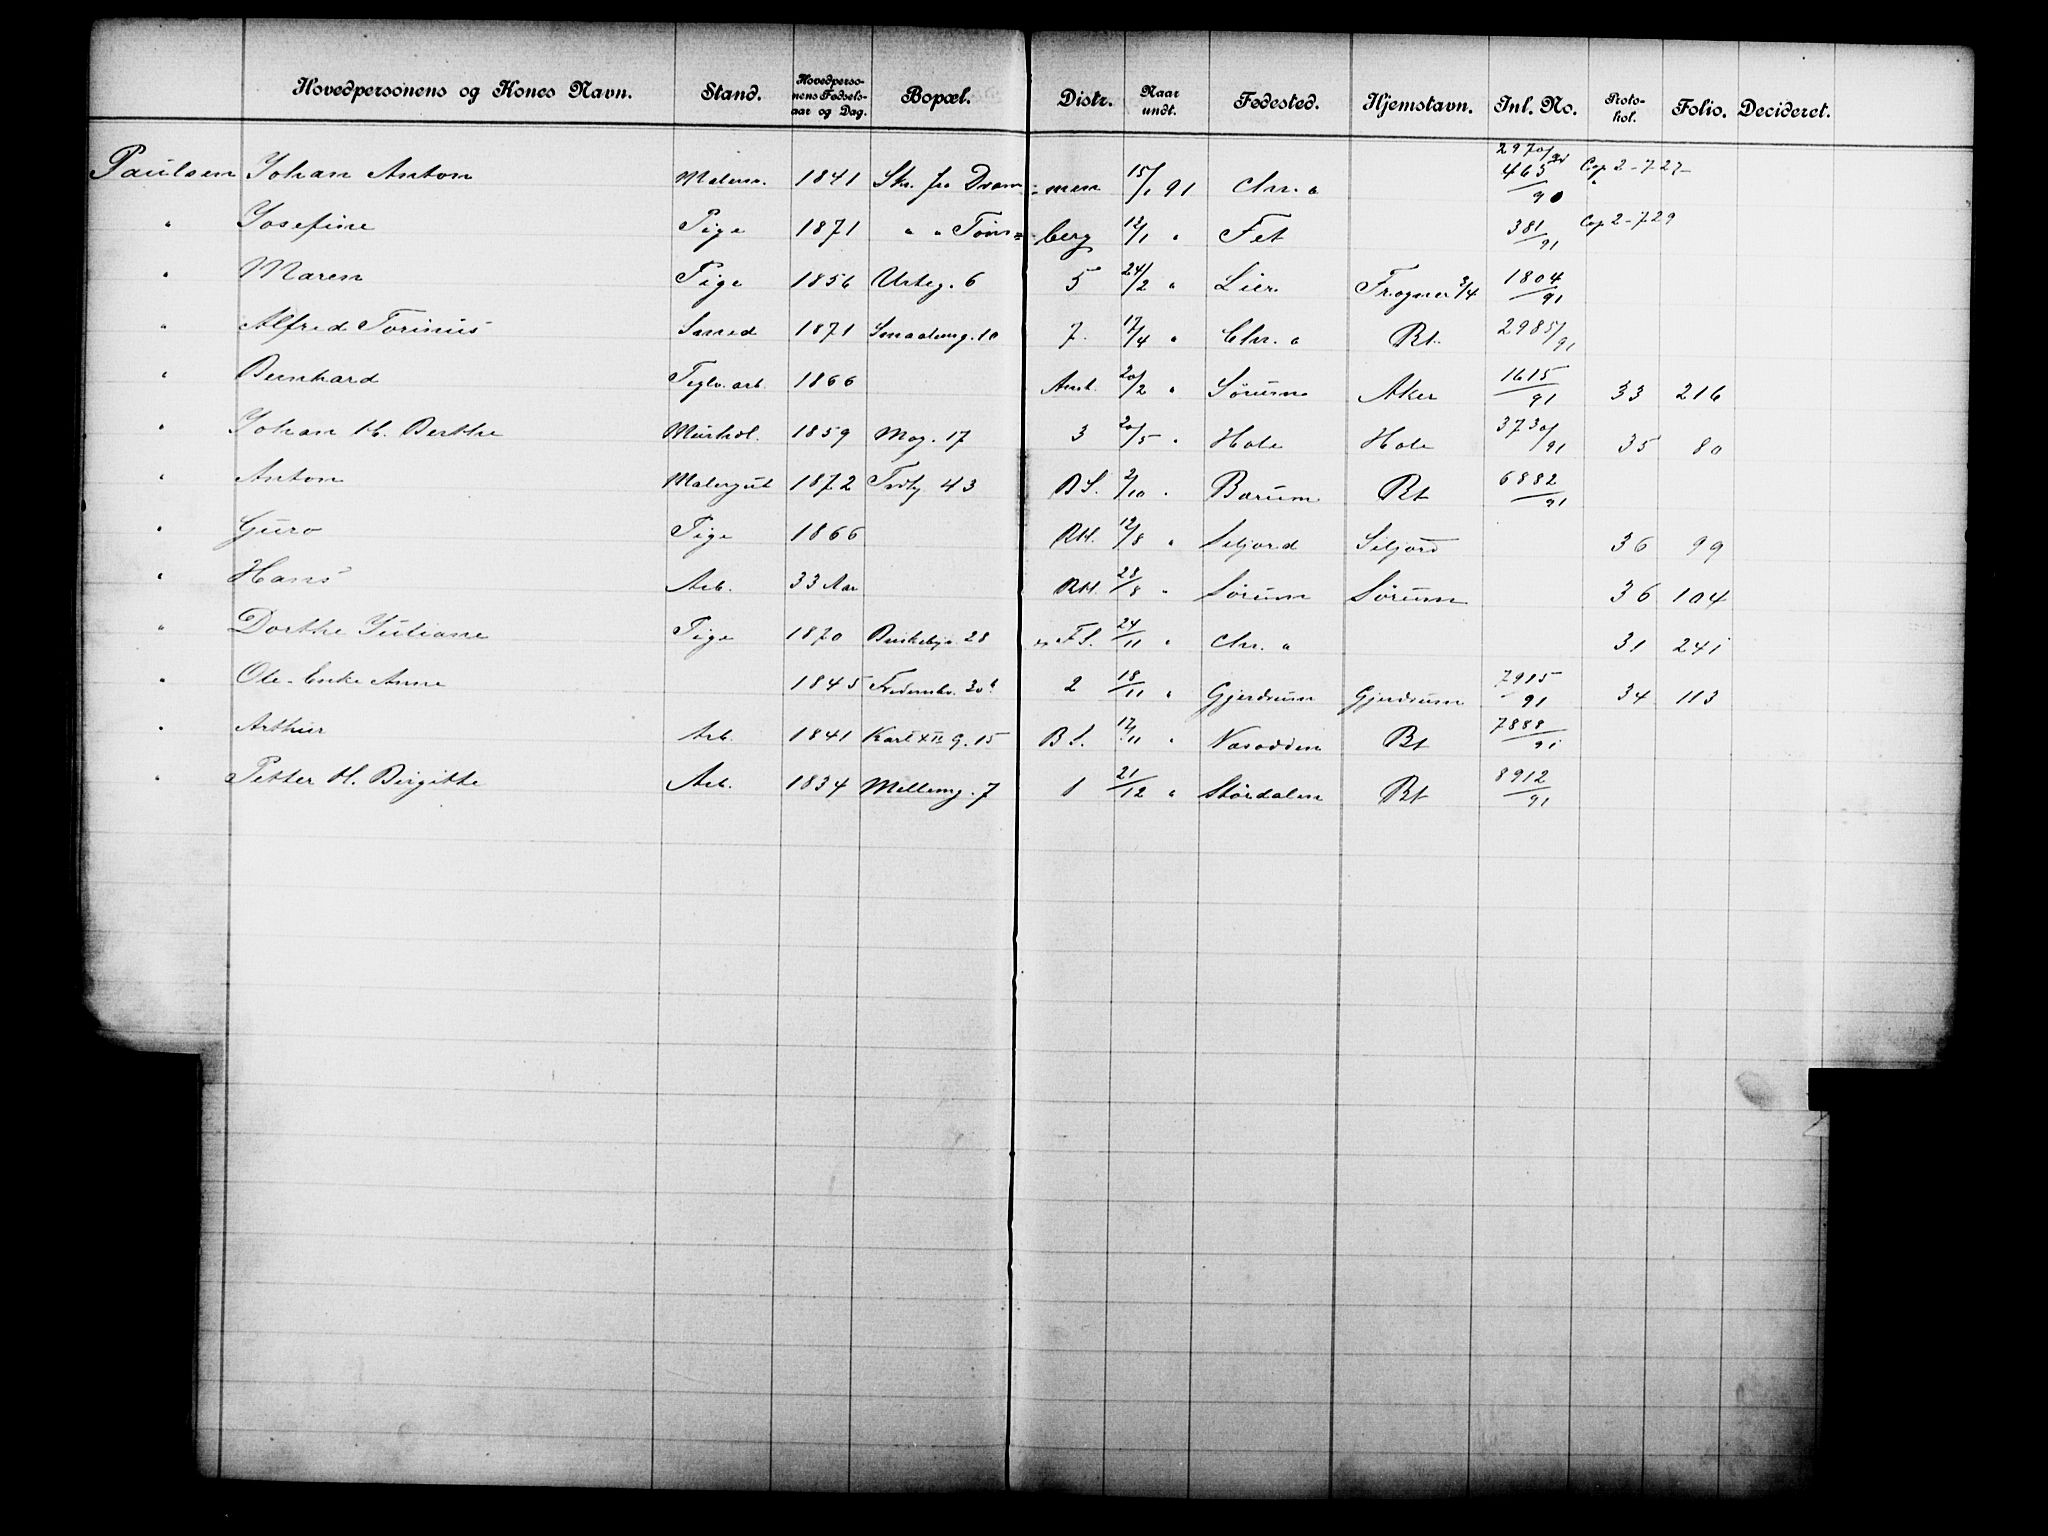 Hovedpersonens og Kones Navn. Stand. Hovedpersonens Fødselsaar og Dag. Bopæl. Distr. Naar undt. Fødested. Hjemstavn. Inl. No. Protokol. Folio. Decideret.
Paulsen Johan Anton Malersv. 1841 Skr. fra Dram=men 15/1 91 Chr.a 2970/90 465/90 Cop. 2-727
" Josefine Pige 1871 " " Töns=berg 12/1 " Fet 381/91 Cop 2-729
" Maren Pige 1856 Urteg. 6 5 24/2 " Lier Frogner 3/4 1804/91
" Alfred Torinius 1871 Smaaleng. 10 7. 17/4 " Chr.a Bt. 2985/91
" Bernhard Teglv. arb. 1866 Amt. 20/2 " Sörum Aker 1615/91 33 216
" Johan H. Berthe Murhdl. 1859 Mog. 17 3 20/5 " Hole Hole 3730/91 35 80
" Anton Malergut 1872 43 BS. 2/10 " Bærum Bt 6882/91
" Guro Pige 1866 RH. 12/8 " Seljord Seljord 36 99
" Hans Arb. 33 Aar RH. 28/8 " Sörum Sörum 36 104
" Dorthe Juliane Pige 1870 28 FS. 24/11 " Chr.a 31 241
" Ole - Enke Anne 1845 2 18/11 " Gjerdrum Gjerdrum 7915/91 34 113
" Arthur Arb. 1841 Karl XII g. 15 BS. 17/11 " Næsodden Bt 7888/91
" Petter H. Birgitte Arb. 1834 Mellemg. 7 1 21/12 " Størdalen Bt 8912/91